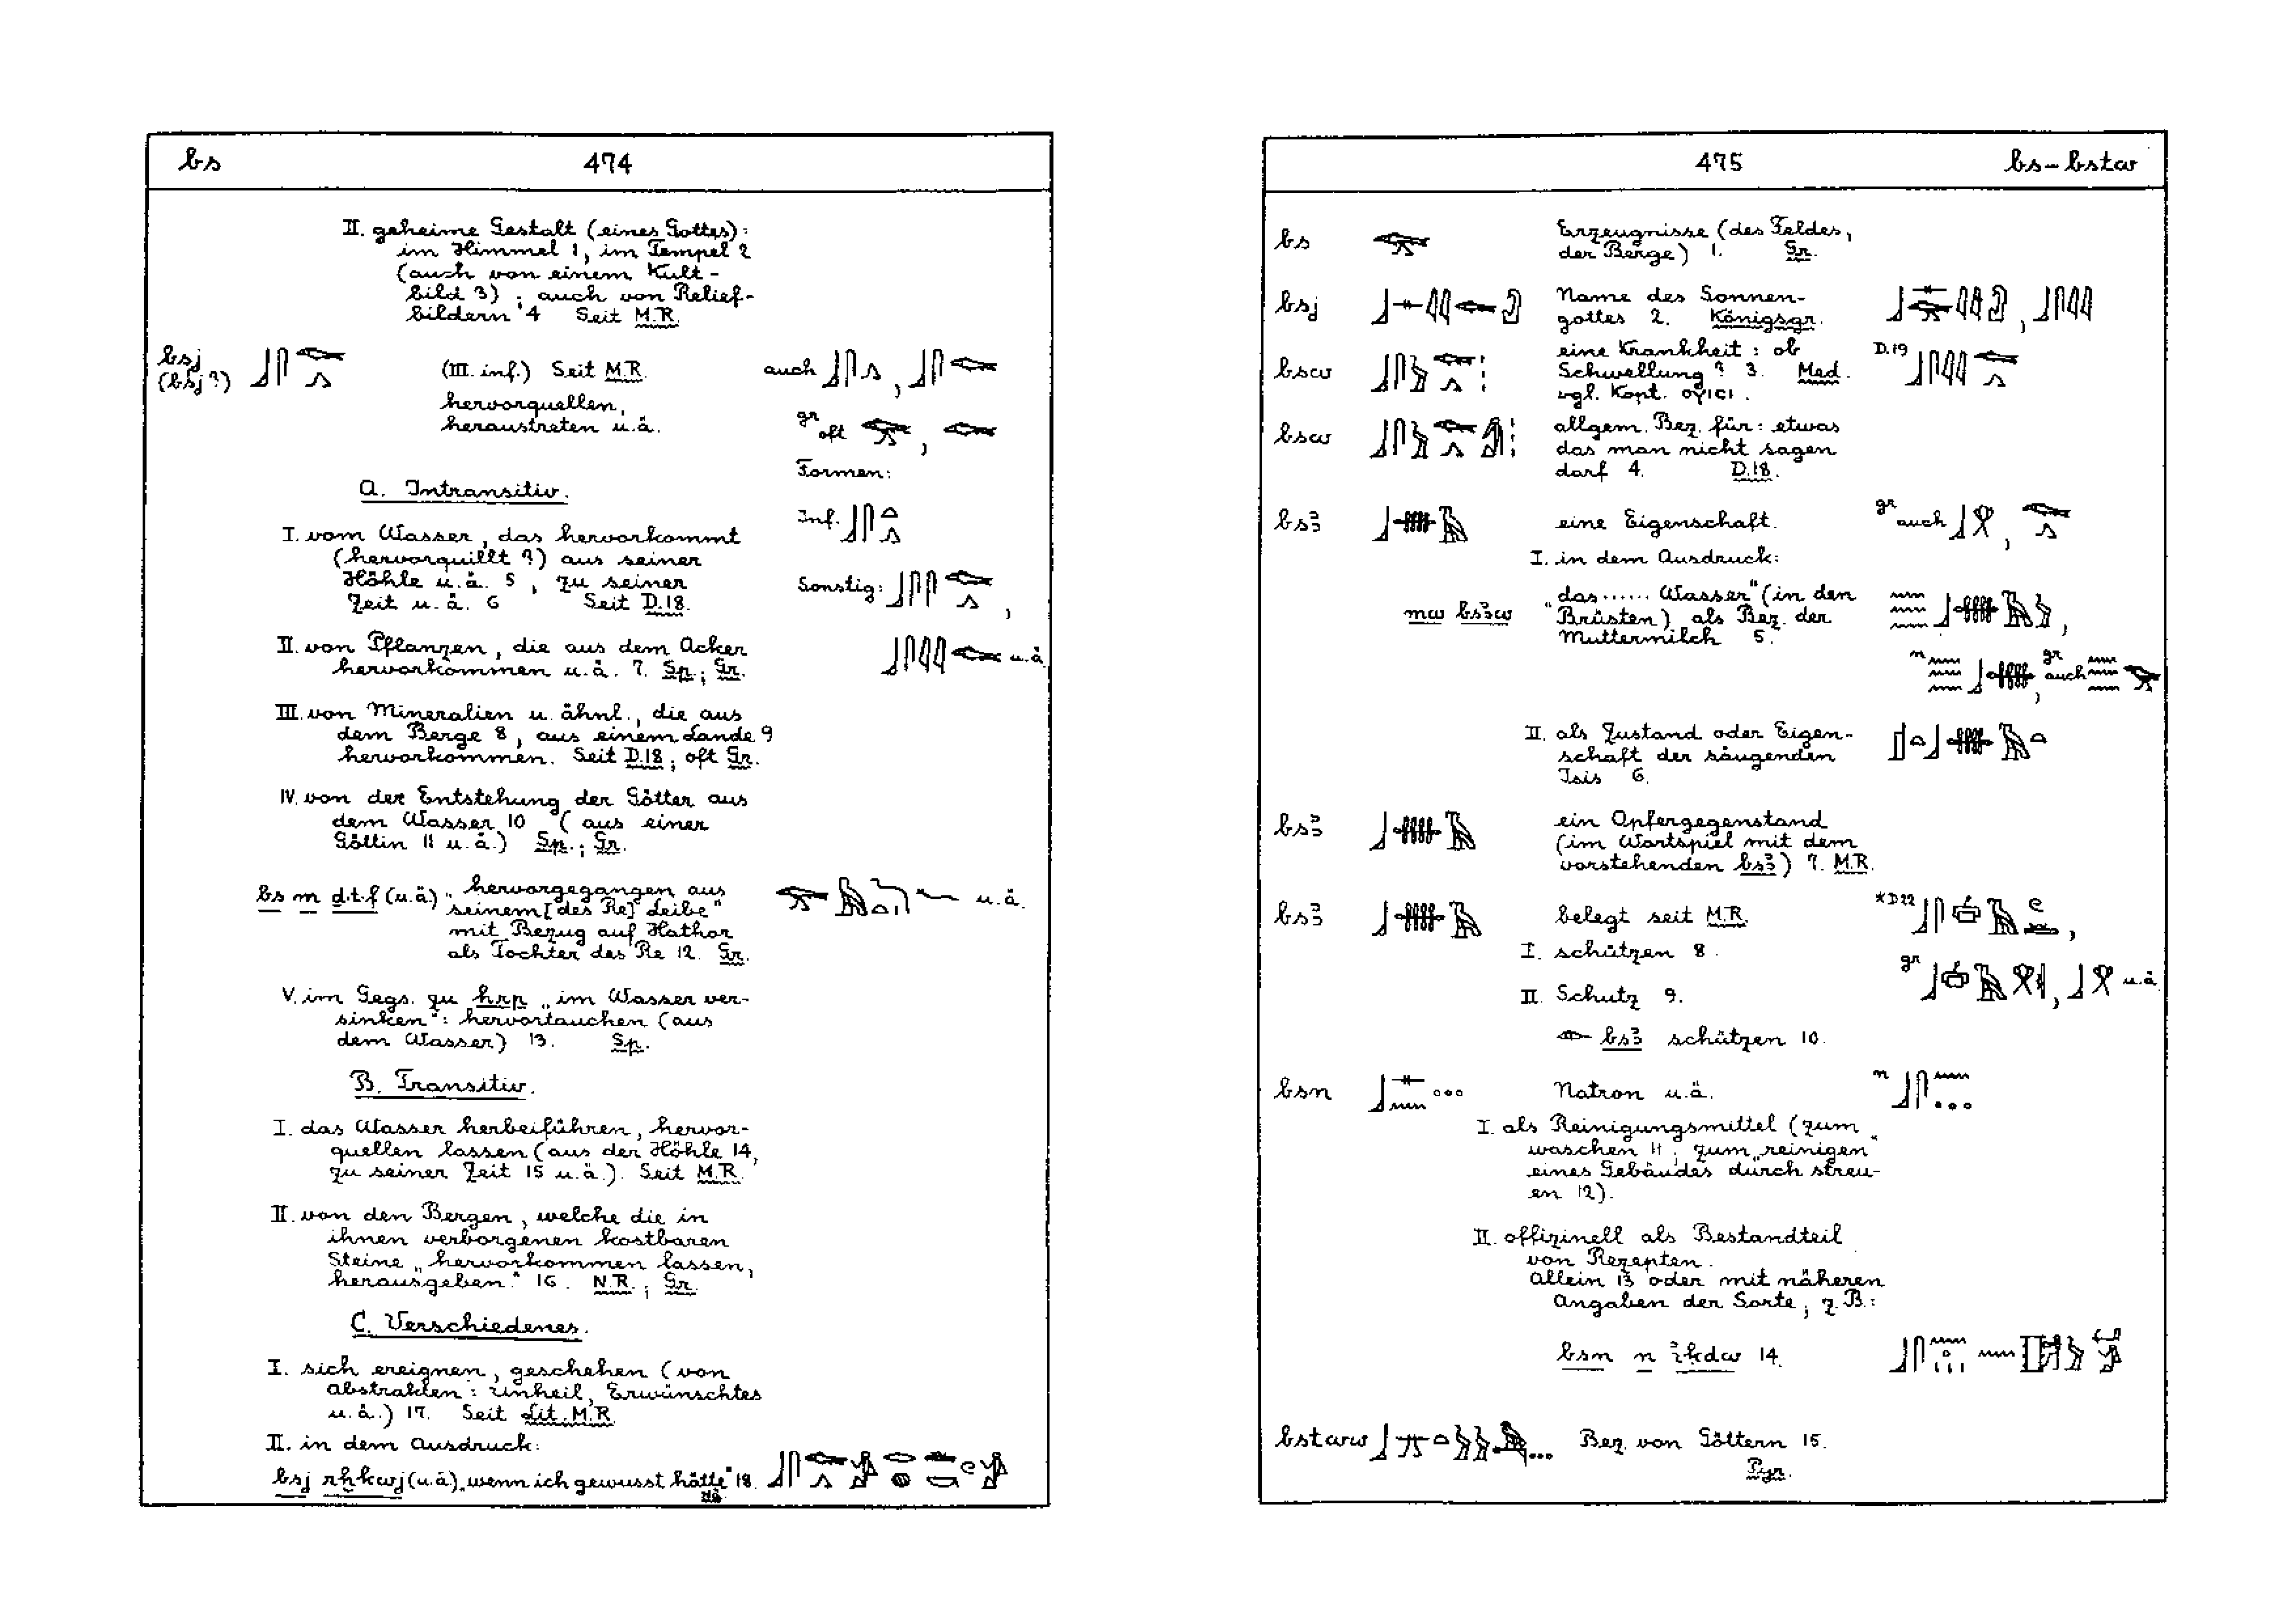 bs 474
II. geheime Gestalt (eines Gottes):
im Himmel 1, im Tempel 2
(auch von einem Kult-
bild 3); auch von Relief-
bildern 4 Seit M.R.
bsj (III. inf.) Seit M.R. auch
(bsj ?)
hervorquellen,
heraustreten u.ä.
gr oft
Formen:
A. Intransitiv.
Inf.
I. vom Wasser, das hervorkommt
(hervorquillt?) aus seiner
Höhle u.ä. 5, zu seiner
Zeit u.ä. 6 Seit D.18.
Sonstig:
II. von Pflanzen, die aus dem Acker
hervorkommen u.ä. 7. Sp.; Gr.
u.ä.
III. von Mineralien u. ähnl., die aus
dem Berge 8, aus einem Lande 9
hervorkommen. Seit D.18; oft Gr.
IV. von der Entstehung der Götter aus
dem Wasser 10 (aus einer
Göttin 11 u.ä.) Sp.; Gr.
bs m d.t.f (u.ä.) „hervorgegangen aus
seinem [des Re] Leibe“ u.ä.
mit Bezug auf Hathor
als Tochter des Re 12. Gr.
V. im Gegs. zu hrp „im Wasser ver-
sinken“: hervortauchen (aus
dem Wasser) 13. Sp.
B. Transitiv.
I. das Wasser herbeiführen, hervor-
quellen lassen (aus der Höhle 14,
zu seiner Zeit 15 u.ä.). Seit M.R.
II. von den Bergen, welche die in
ihnen verborgenen kostbaren
Steine „hervorkommen lassen,
herausgeben.“ 16. N.R.; Gr.
C. Verschiedenes.
I. sich ereignen, geschehen (von
Abstrakten: Unheil, Erwünschtes
u.ä.) 17. Seit Lit. M.R.
II. in dem Ausdruck:
bsj rḫkwj (u.ä.) „wenn ich gewusst hätte“ 18.
475 bs-bstw
bs Erzeugnisse (des Feldes,
der Berge) 1. Gr.
bsj Name des Sonnen-
gottes 2. Königsgr.
bsw eine Krankheit: ob D.19
Schwellung? 3. Med.
vgl. Kopt. ⲟⲩⲓⲥⲓ.
bsw allgem. Bez. für: etwas
das man nicht sagen
darf 4. D.18.
bsꜣ eine Eigenschaft. gr auch
I. in dem Ausdruck:
mw bsꜣw „das ...... Wasser“ (in den
Brüsten) als Bez. der
Muttermilch 5.
n gr auch
II. als Zustand oder Eigen-
schaft der säugenden
Isis 6.
bsꜣ ein Opfergegenstand
(im Wortspiel mit dem
vorstehenden bsꜣ) 7. M.R.
bsꜣ belegt seit M.R. *D22
I. schützen 8.
gr u.ä.
II. Schutz 9.
bsꜣ schützen 10.
bsn Natron u.ä. n
I. als Reinigungsmittel (zum
waschen 11; zum „reinigen“
eines Gebäudes durch streu-
en 12).
II. offizinell als Bestandteil
von Rezepten.
Allein 13 oder mit näheren
Angaben der Sorte; z.B.:
bsn n ꜣkdw 14.
bstww Bez. von Göttern 15.
Pyr.